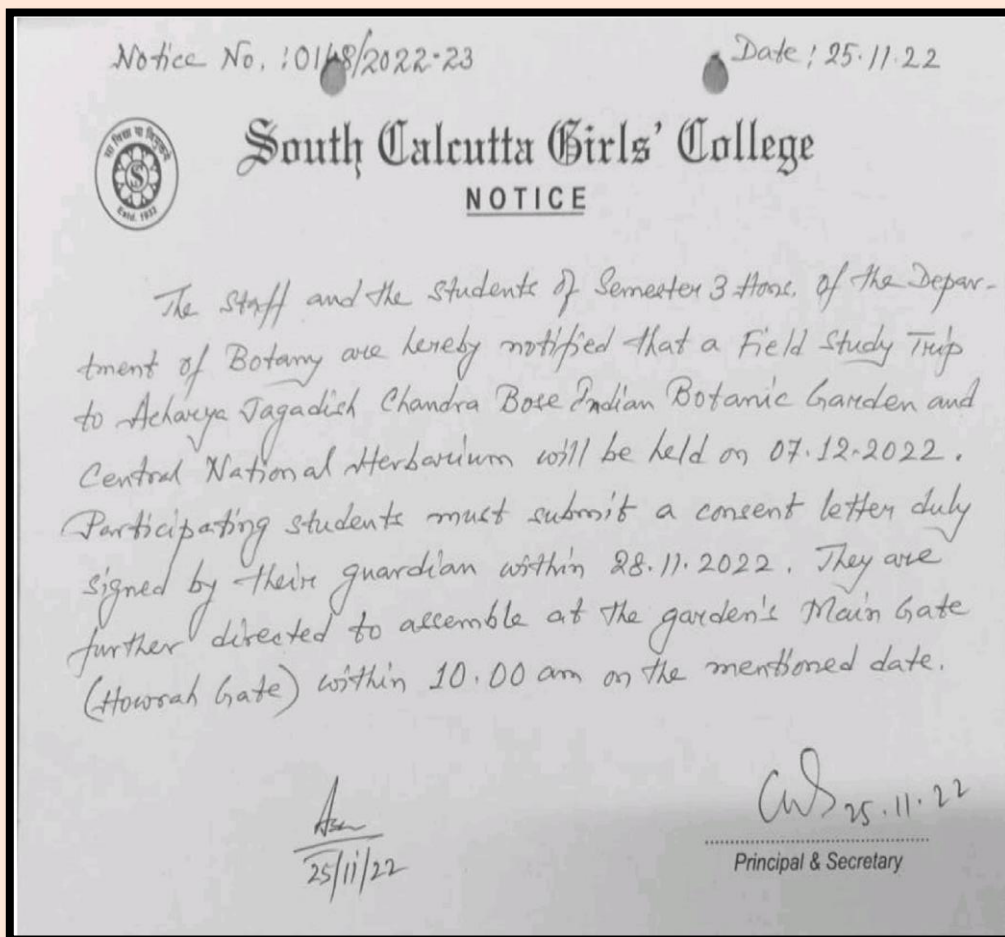 Notice No. : 0148/2022-23
Date : 25.11.22
सा विद्या या विमुक्तये
S
Estd. 1932
South Calcutta Girls' College
NOTICE
The Staff and the students of Semester 3 Hons. of the Depar-
tment of Botany are hereby notified that a Field Study Trip
to Acharya Jagadish Chandra Bose Indian Botanic Garden and
Central National Herbarium will be held on 07.12.2022.
Participating students must submit a consent letter duly
signed by their guardian within 28.11.2022. They are
further directed to assemble at the garden's Main Gate
(Howrah Gate) within 10.00 am on the mentioned date.
25.11.22
25/11/22
Principal & Secretary